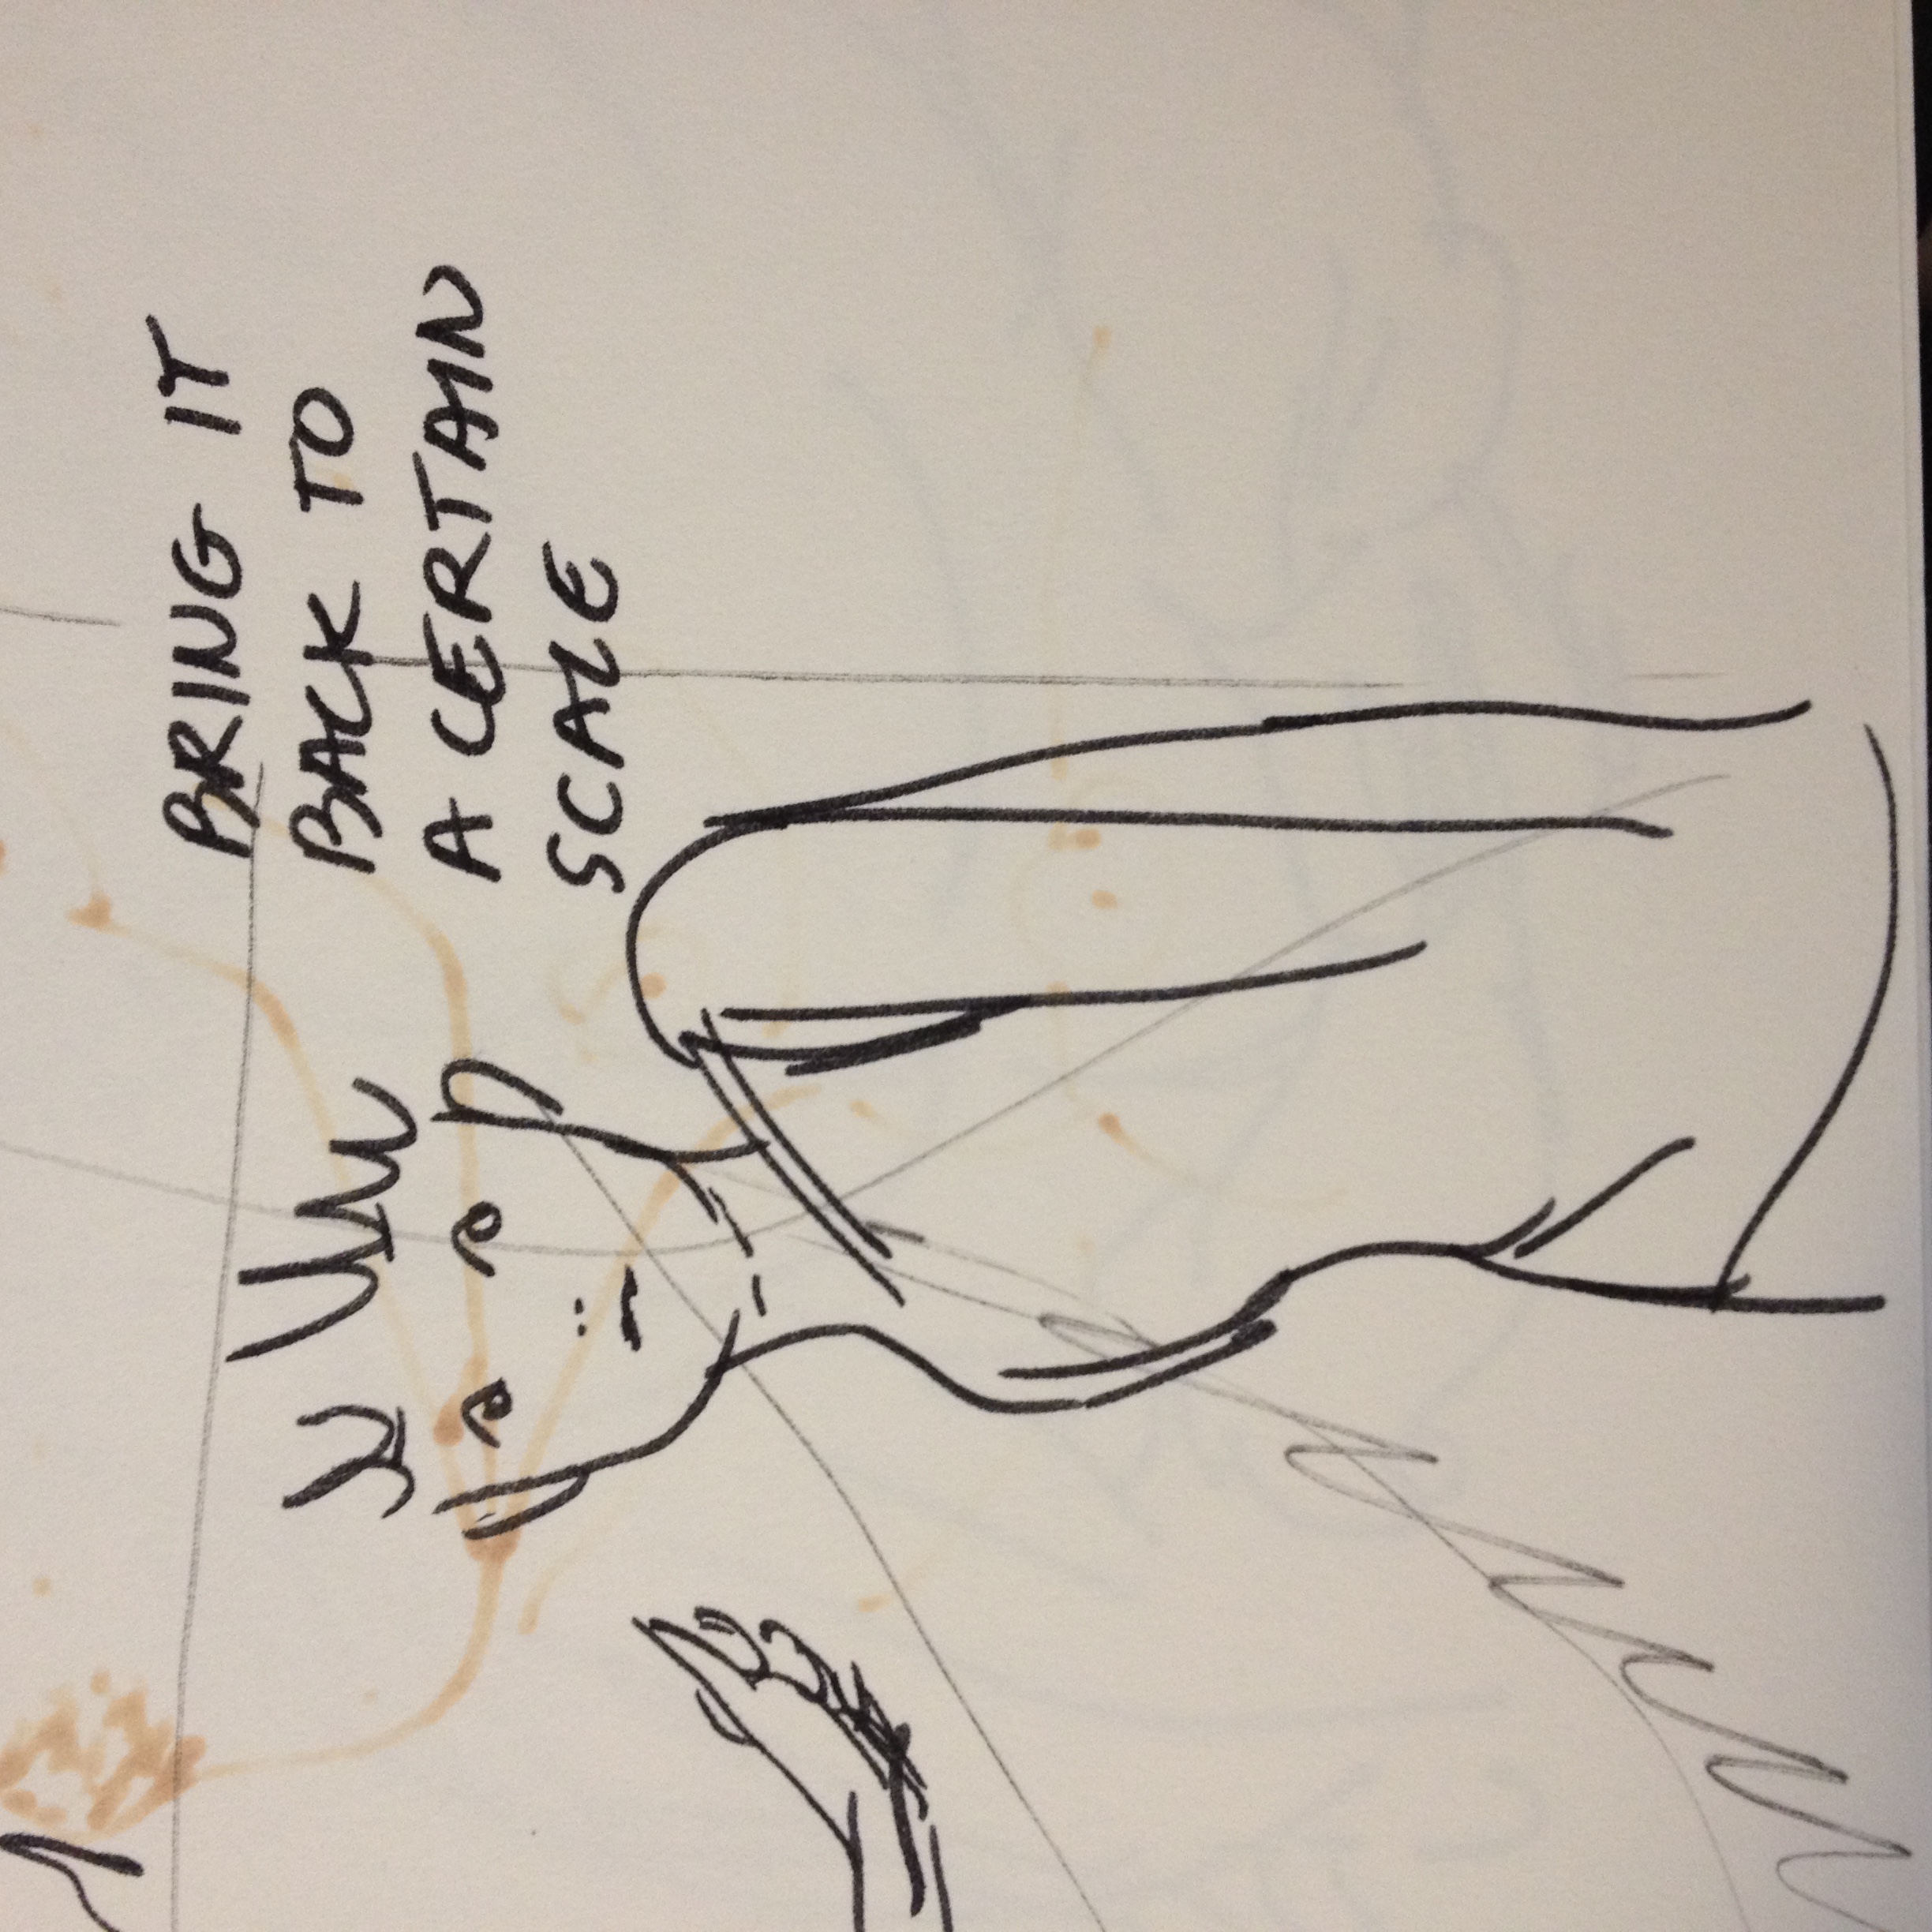 BRING IT
BACK TO
A CERTAIN
SCALE